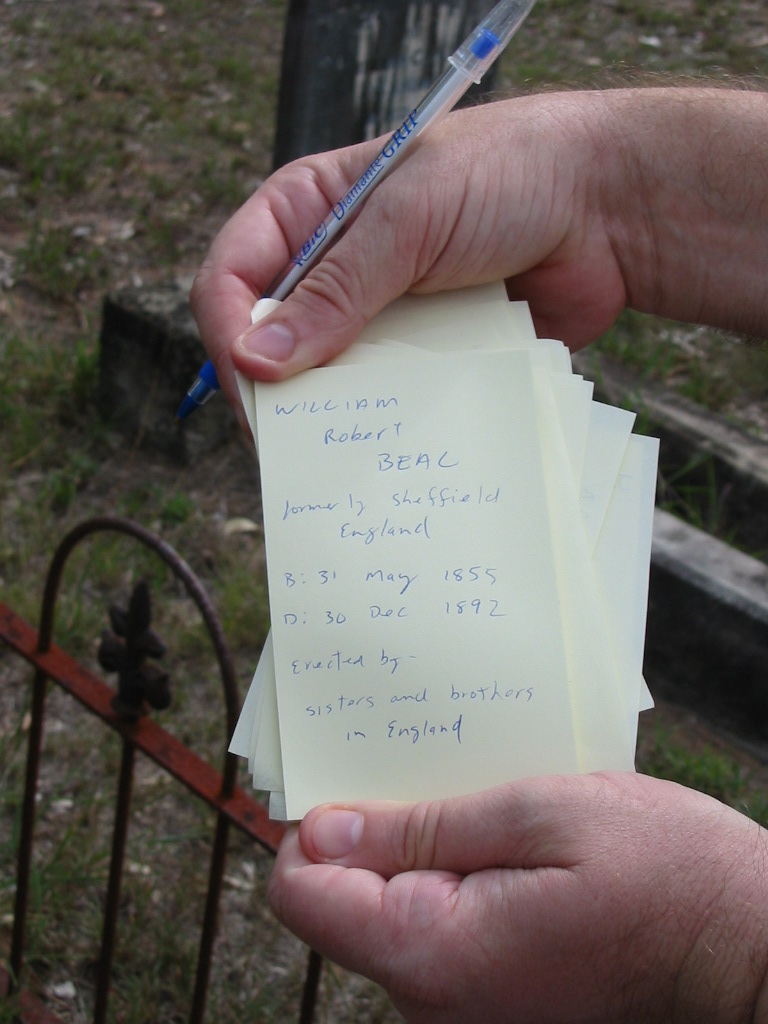 BIC Diamante GRIP
WILLIAM
Robert
BEAL
formerly Sheffield
England
B: 31 May 1855
D: 30 Dec 1892
Erected by-
sisters and brothers
in England